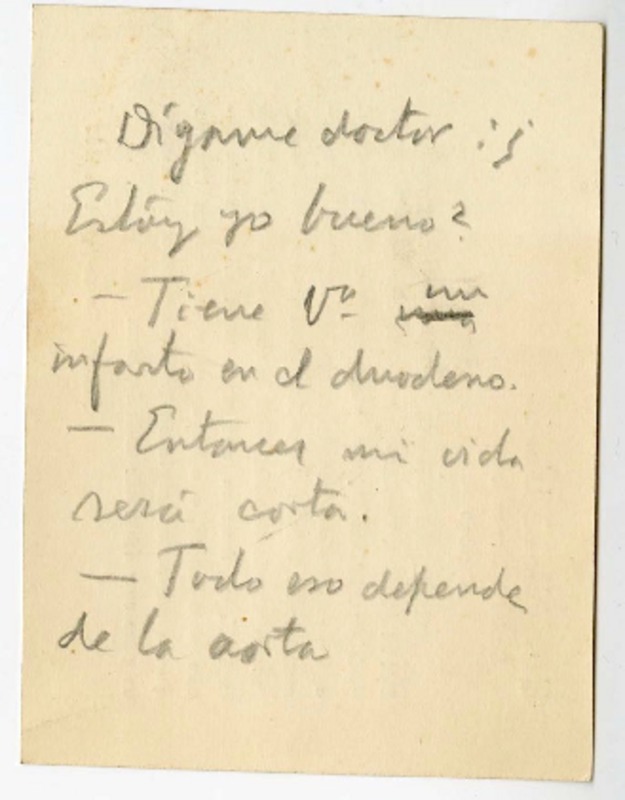 Dígame doctor : ¿
Estóy yo bueno?
— Tiene Vd. un
infarto en el duodeno.
— Entonces mi vida
será corta.
— Todo eso depende
de la aorta